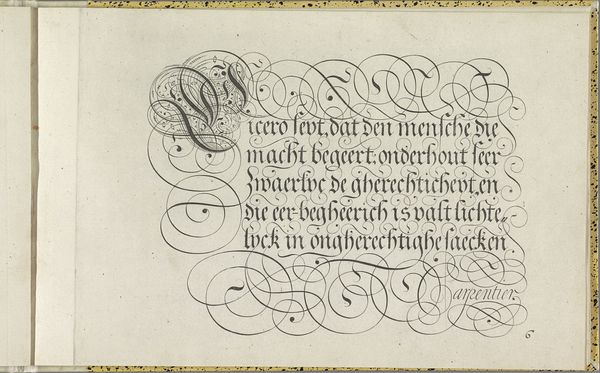 Cicero seyt, dat den mensche die
macht begeert, onderhout seer
zwaerlyc de gherechticheyt, en
die eer-begheerich is valt lichte„
lyck in ongherechtighe saecken
Carpentier.
6